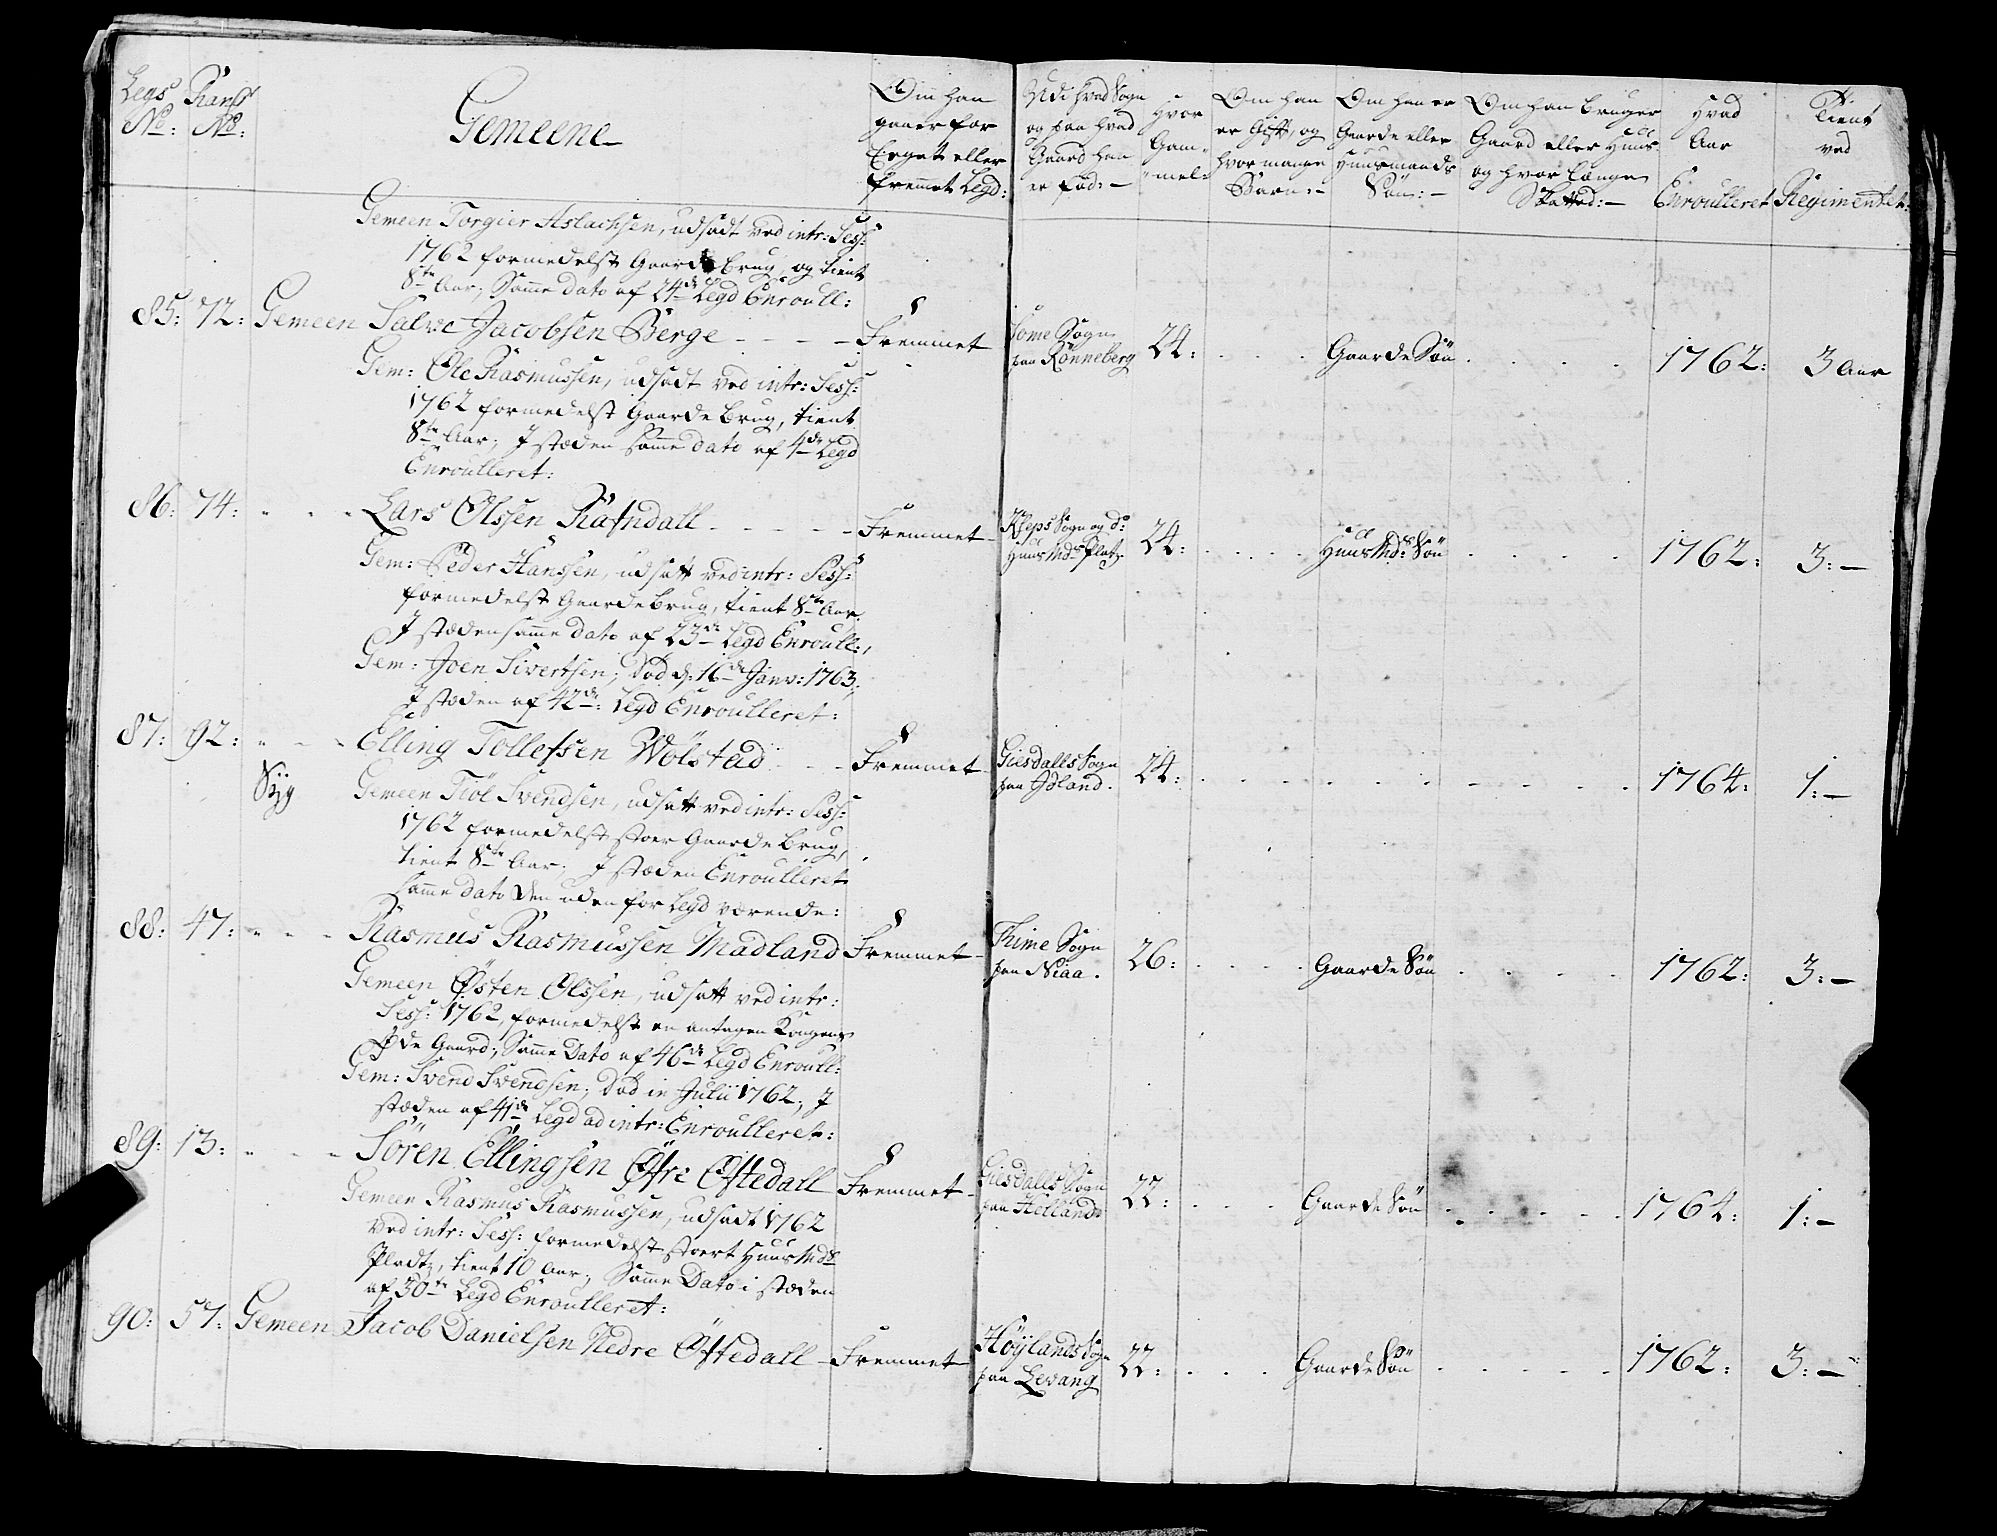 Legs No: Rangs No: Gemeene
Om han
gaaer for
Eeget eller
fremmet Legd:
Udi hvad Sogn
og paa hvad
Gaard han
er fød: –
Hvor
Gam-
mel:
Om han
er Gift, og
hvor mange
Børn: –
Om han er
Gaarde eller
Huusmands
Søn: –
Om han bruger
Gaard eller Huus
og hvor længe
Skatted: –
Hvad
Aar
Enroulleret
Tient
ved
Regimentet:
Gemeen Torgier Aslachsen, udsadt ved intr: Sess:
1762 formedelst Gaarde brug, og tient
8te Aar; Samme dato af 24de Legd Enroull:
85: 72: Gemeen Salve Jacobsen Berge - - - - Fremmet Some Sogn paa Rönneberg 24: - - - Gaarde Søn - - - - 1762: 3 Aar
Gem: Ole Rasmussen, udsadt ved intr: Sess:
1762 formedelst Gaarde brug, tient
8te Aar; I stæden samme dato af 4de Legd
Enroulleret:
86: 74: - - - Lars Olssen Rafndall - - - - - Fremmet Kleps Sogn og do: Huus Mds Platz 24: - - - - Huus Mds: Søn - - - - 1762: 3: –
Gem: Peder Hanssen, udsatt ved intr: Sess:
formedelst Gaardebrug, tient 8te Aar,
I stæden samme dato af 23de Legd Enroull:,
Gem: Joen Sivertsen, Død d: 16de Janv: 1763;
I stæden af 42de: Legd Enroulleret:
87: 92: - - - Elling Tollefssen Wölstad - - - Fremmet Giesdalls Sogn paa Idland. 24: - - - - - - - - - 1764: 1: –
Syg
Gemeen Tiöl Svendsen, udsatt ved intr: Sess:
1762 formedelst stoer Gaarde brug,
tient 8te Aar; I stæden Enroulleret
samme dato den uden for Legd værende:
88: 47: - - - Rasmus Rasmussen Madland Fremmet Thime Sogn paa Niaa. 26: - - - - Gaarde Søn - - - - 1762: 3: –
Gemeen Østen Olssen, udsatt ved intr:
Sess: 1762, formedelst en antagen Kongens
Øde Gaard; Samme Dato af 46de Legd Enroull:
Gem: Svend Svendsen, Død in Julii 1762; I
stæden af 41de Legd ad intr: Enroulleret:
89: 13: - - - Sören Ellingsen Øfre Oftedall Fremmet Giesdalls Sogn paa Helland 22: - - - Gaarde Søn - - - - - 1764: 1: –
Gemeen Rasmus Rasmussen, udsadt 1762
ved intr: Sess: formedelst stoert Huus Mds
Pladtz, tient 10 Aar; Samme Dato i stæden
af 30te Legd Enroulleret:
90: 57: Gemeen Jacob Danielsen Nedre Oftedall – Fremmet Höÿlands Sogn paa Levang 22: - - - Gaarde Søn - - - - - 1762: 3: –